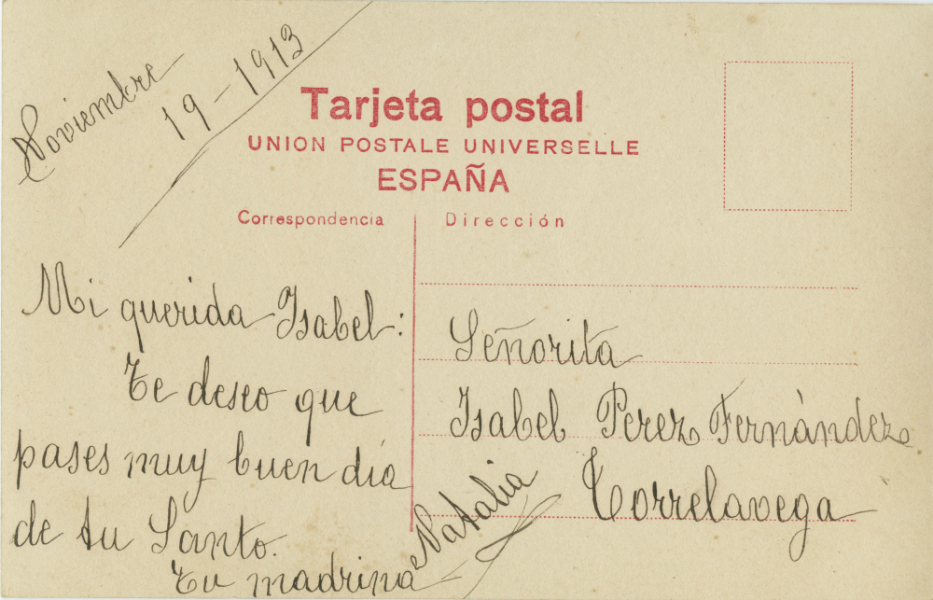 Noviembre
19-1913
Tarjeta postal
UNION POSTALE UNIVERSELLE
ESPAÑA
Correspondencia
Dirección
Mi querida Isabel:
Te deseo que
pases muy buen día
de tu Santo.
Tu madrina
Natalia
Señorita
Isabel Perez Fernàndez
Torrelavega